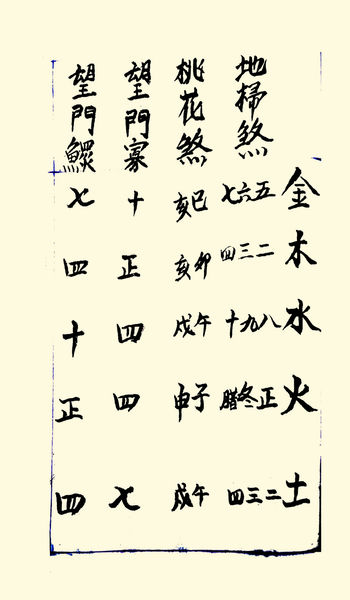 金木水火土
地掃煞 五六七 二三四 八九十 正冬腊 二三四
桃花煞 巳亥 卯亥 午戌 子申 午戌
望門寡 十 正 四 四 七
望門鰥 七 四 十 正 四